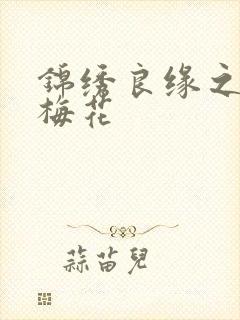 錦绣良缘之
梅花
蒜苗兒